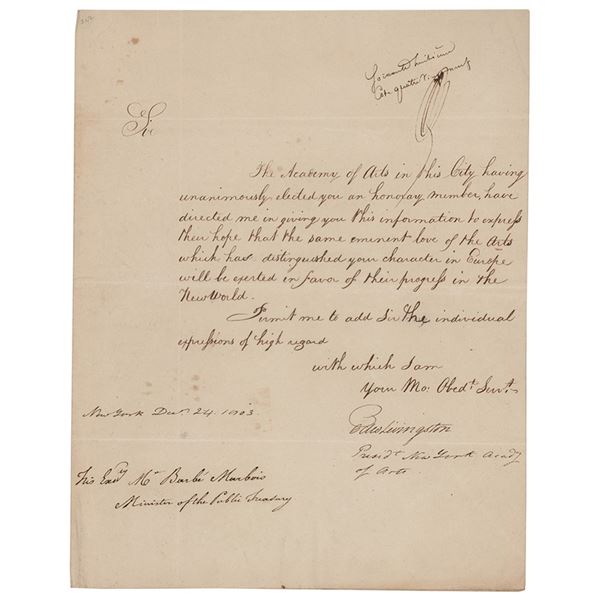 Sir
The Academy of Arts in this City having
unanimously elected you an honoray member, have
directed me in giving you this information to express
their hope that the same eminent love of the Arts
which has distinguished your character in Europe
will be exerted in favor of their progress in the
New World.
Permit me to add Sir the individual
expressions of high regard
with which I am
Your Mo: Obedt Servt
New York Decr 24. 1803.
Edw Livingston
Presidt New York Acady
of Arts.
His Excy Mr Barbé Marbois
Minister of the Public Treasury